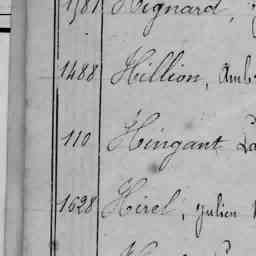 1581 Hignard,
1488 Hillion, Amb
110 Hingant La
1628 Hirel, Julien